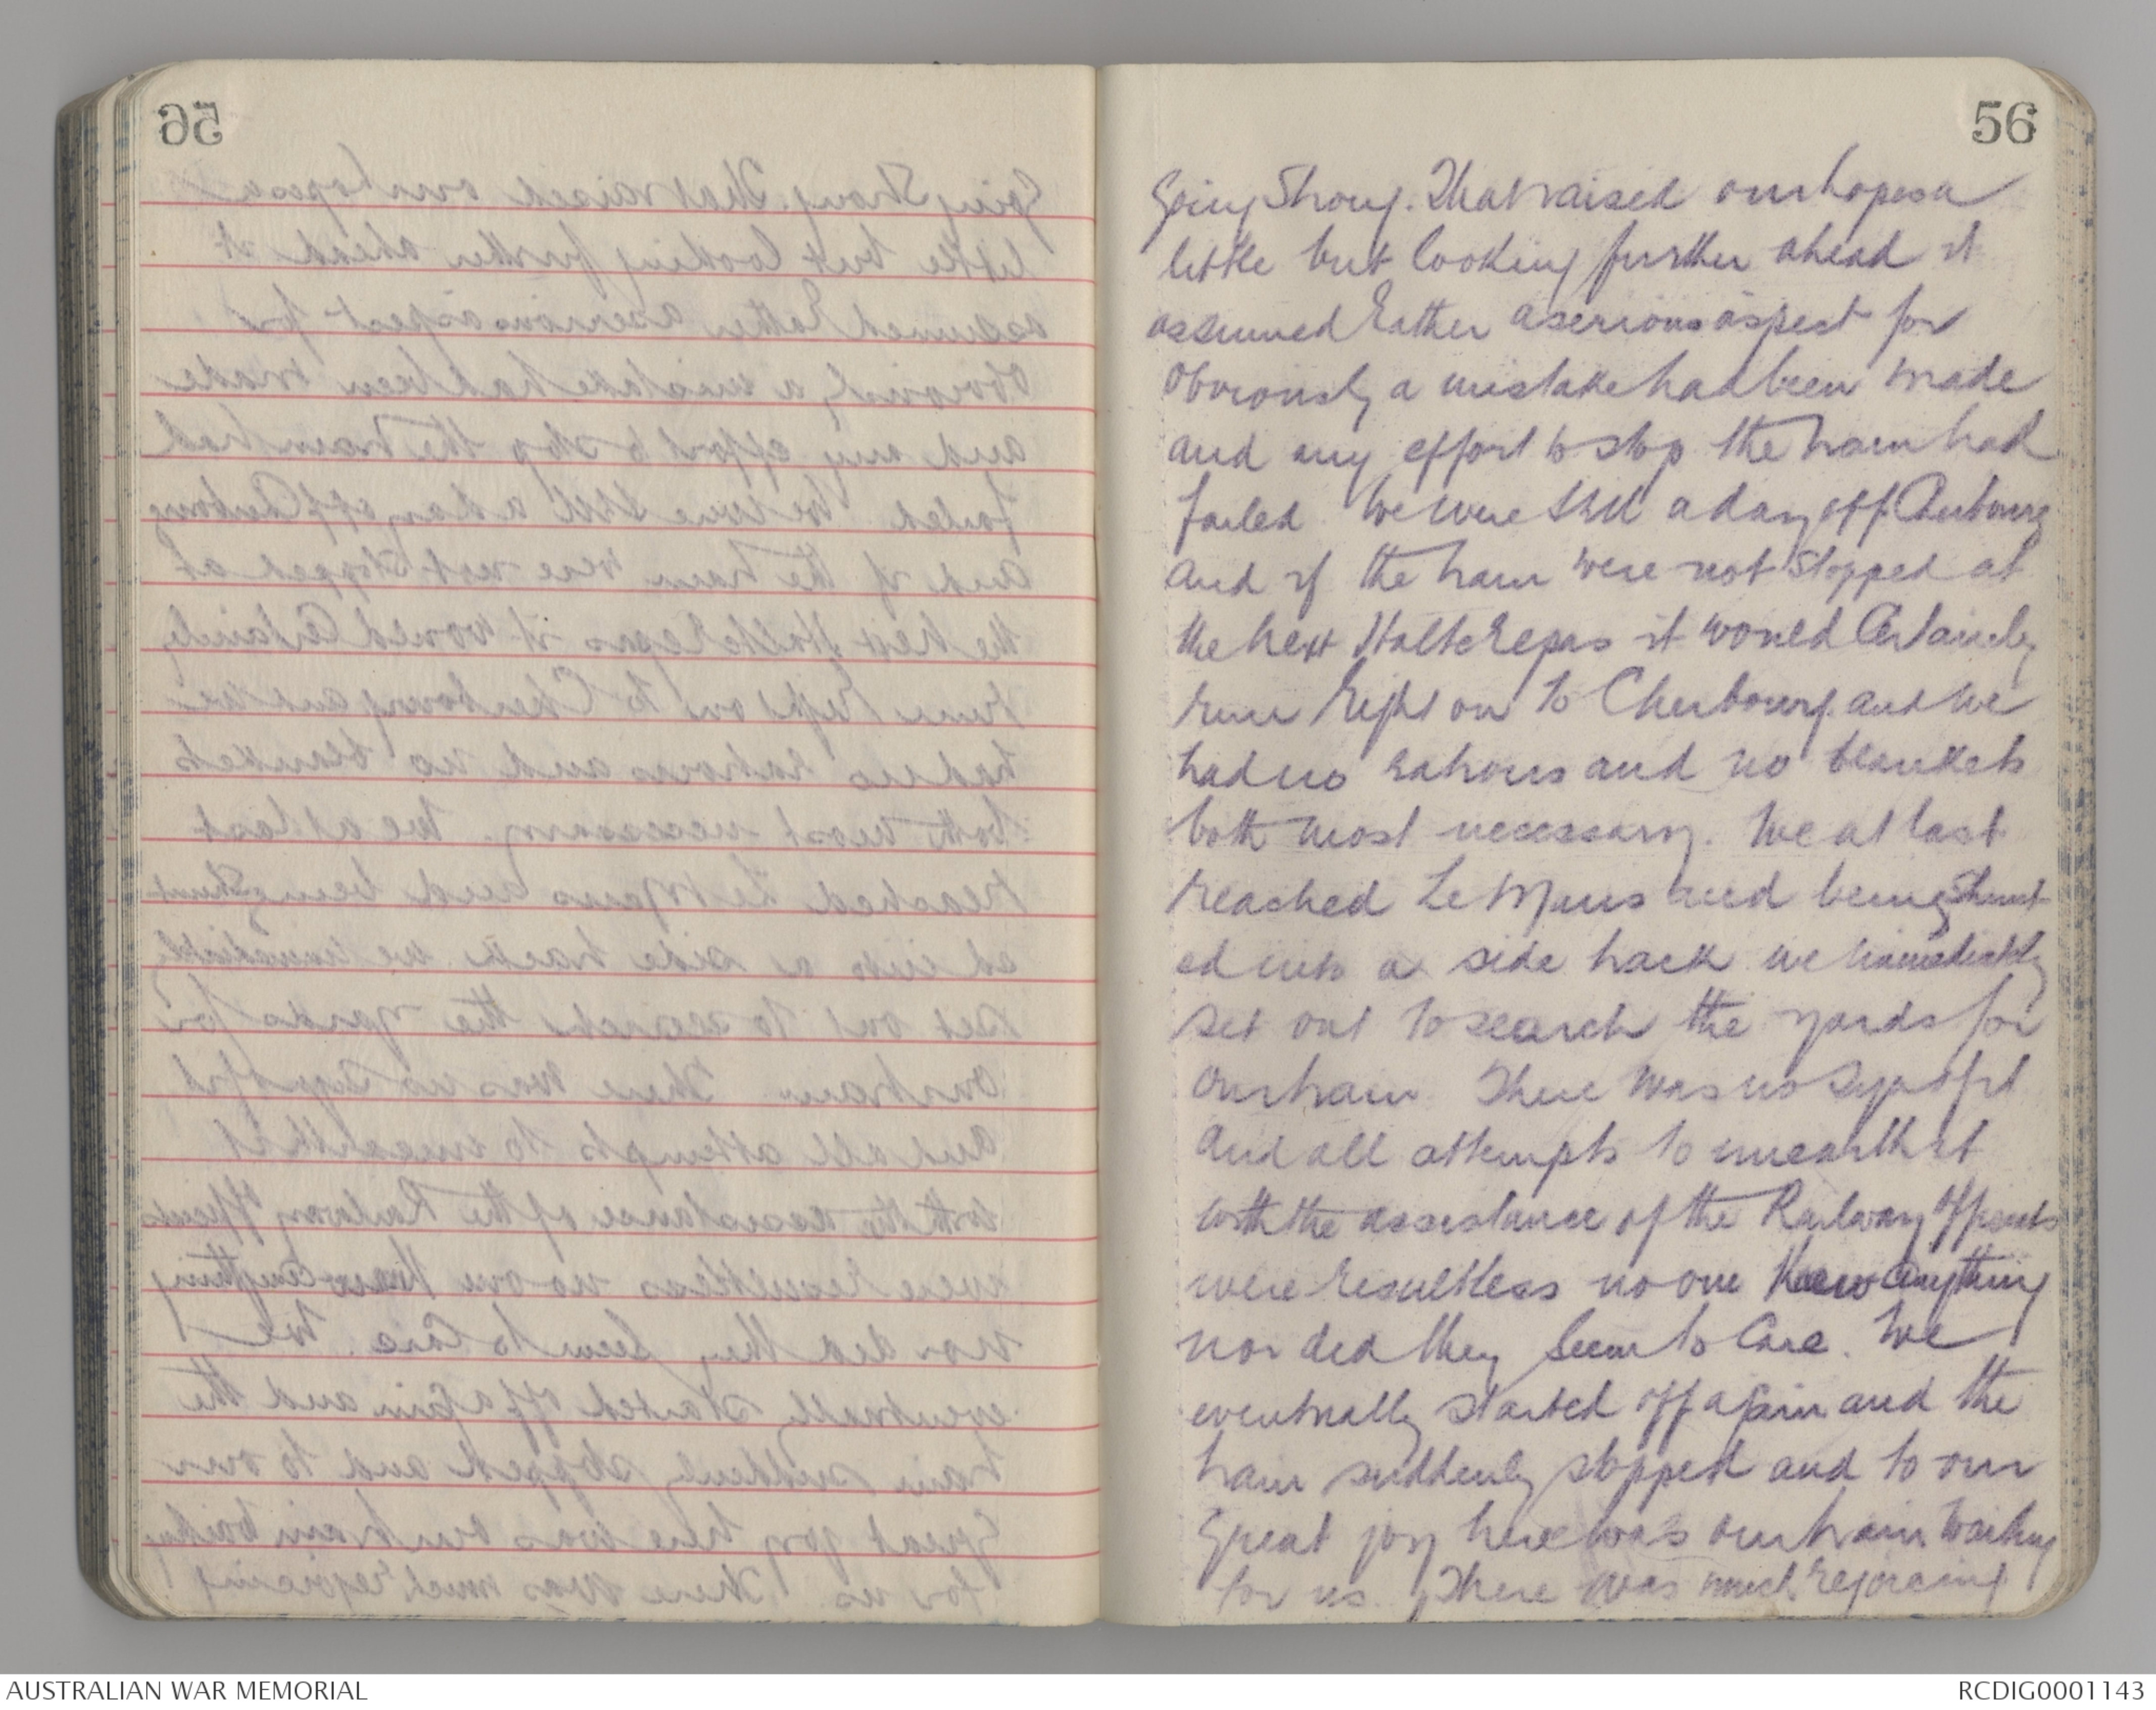 56
going strong. That raised our hopes a
little but looking further ahead it
assumed rather a serious aspect for
obviously a mistake had been made
and any effort to stop the train had
failed. We were still a day off Cherbourg
and if the train were not stopped at
the next Halte Repas it would certainly
run right on to Cherbourg and we
had no rations and no blankets
both most necessary. We at last
reached Le Mans and being shunt
ed into a side track we immediately
set out to search the yards for
our train There was no sign of it
and all attempts to unearth it
with the assistance of the Railway Officials
were resultless no one knew anything
nor did they seem to care. We
eventually started off again and the
train suddenly stopped and to our
great joy here was our train waiting
for us. There was much rejoicing
AUSTRALIAN WAR MEMORIAL
RCDIG0001143